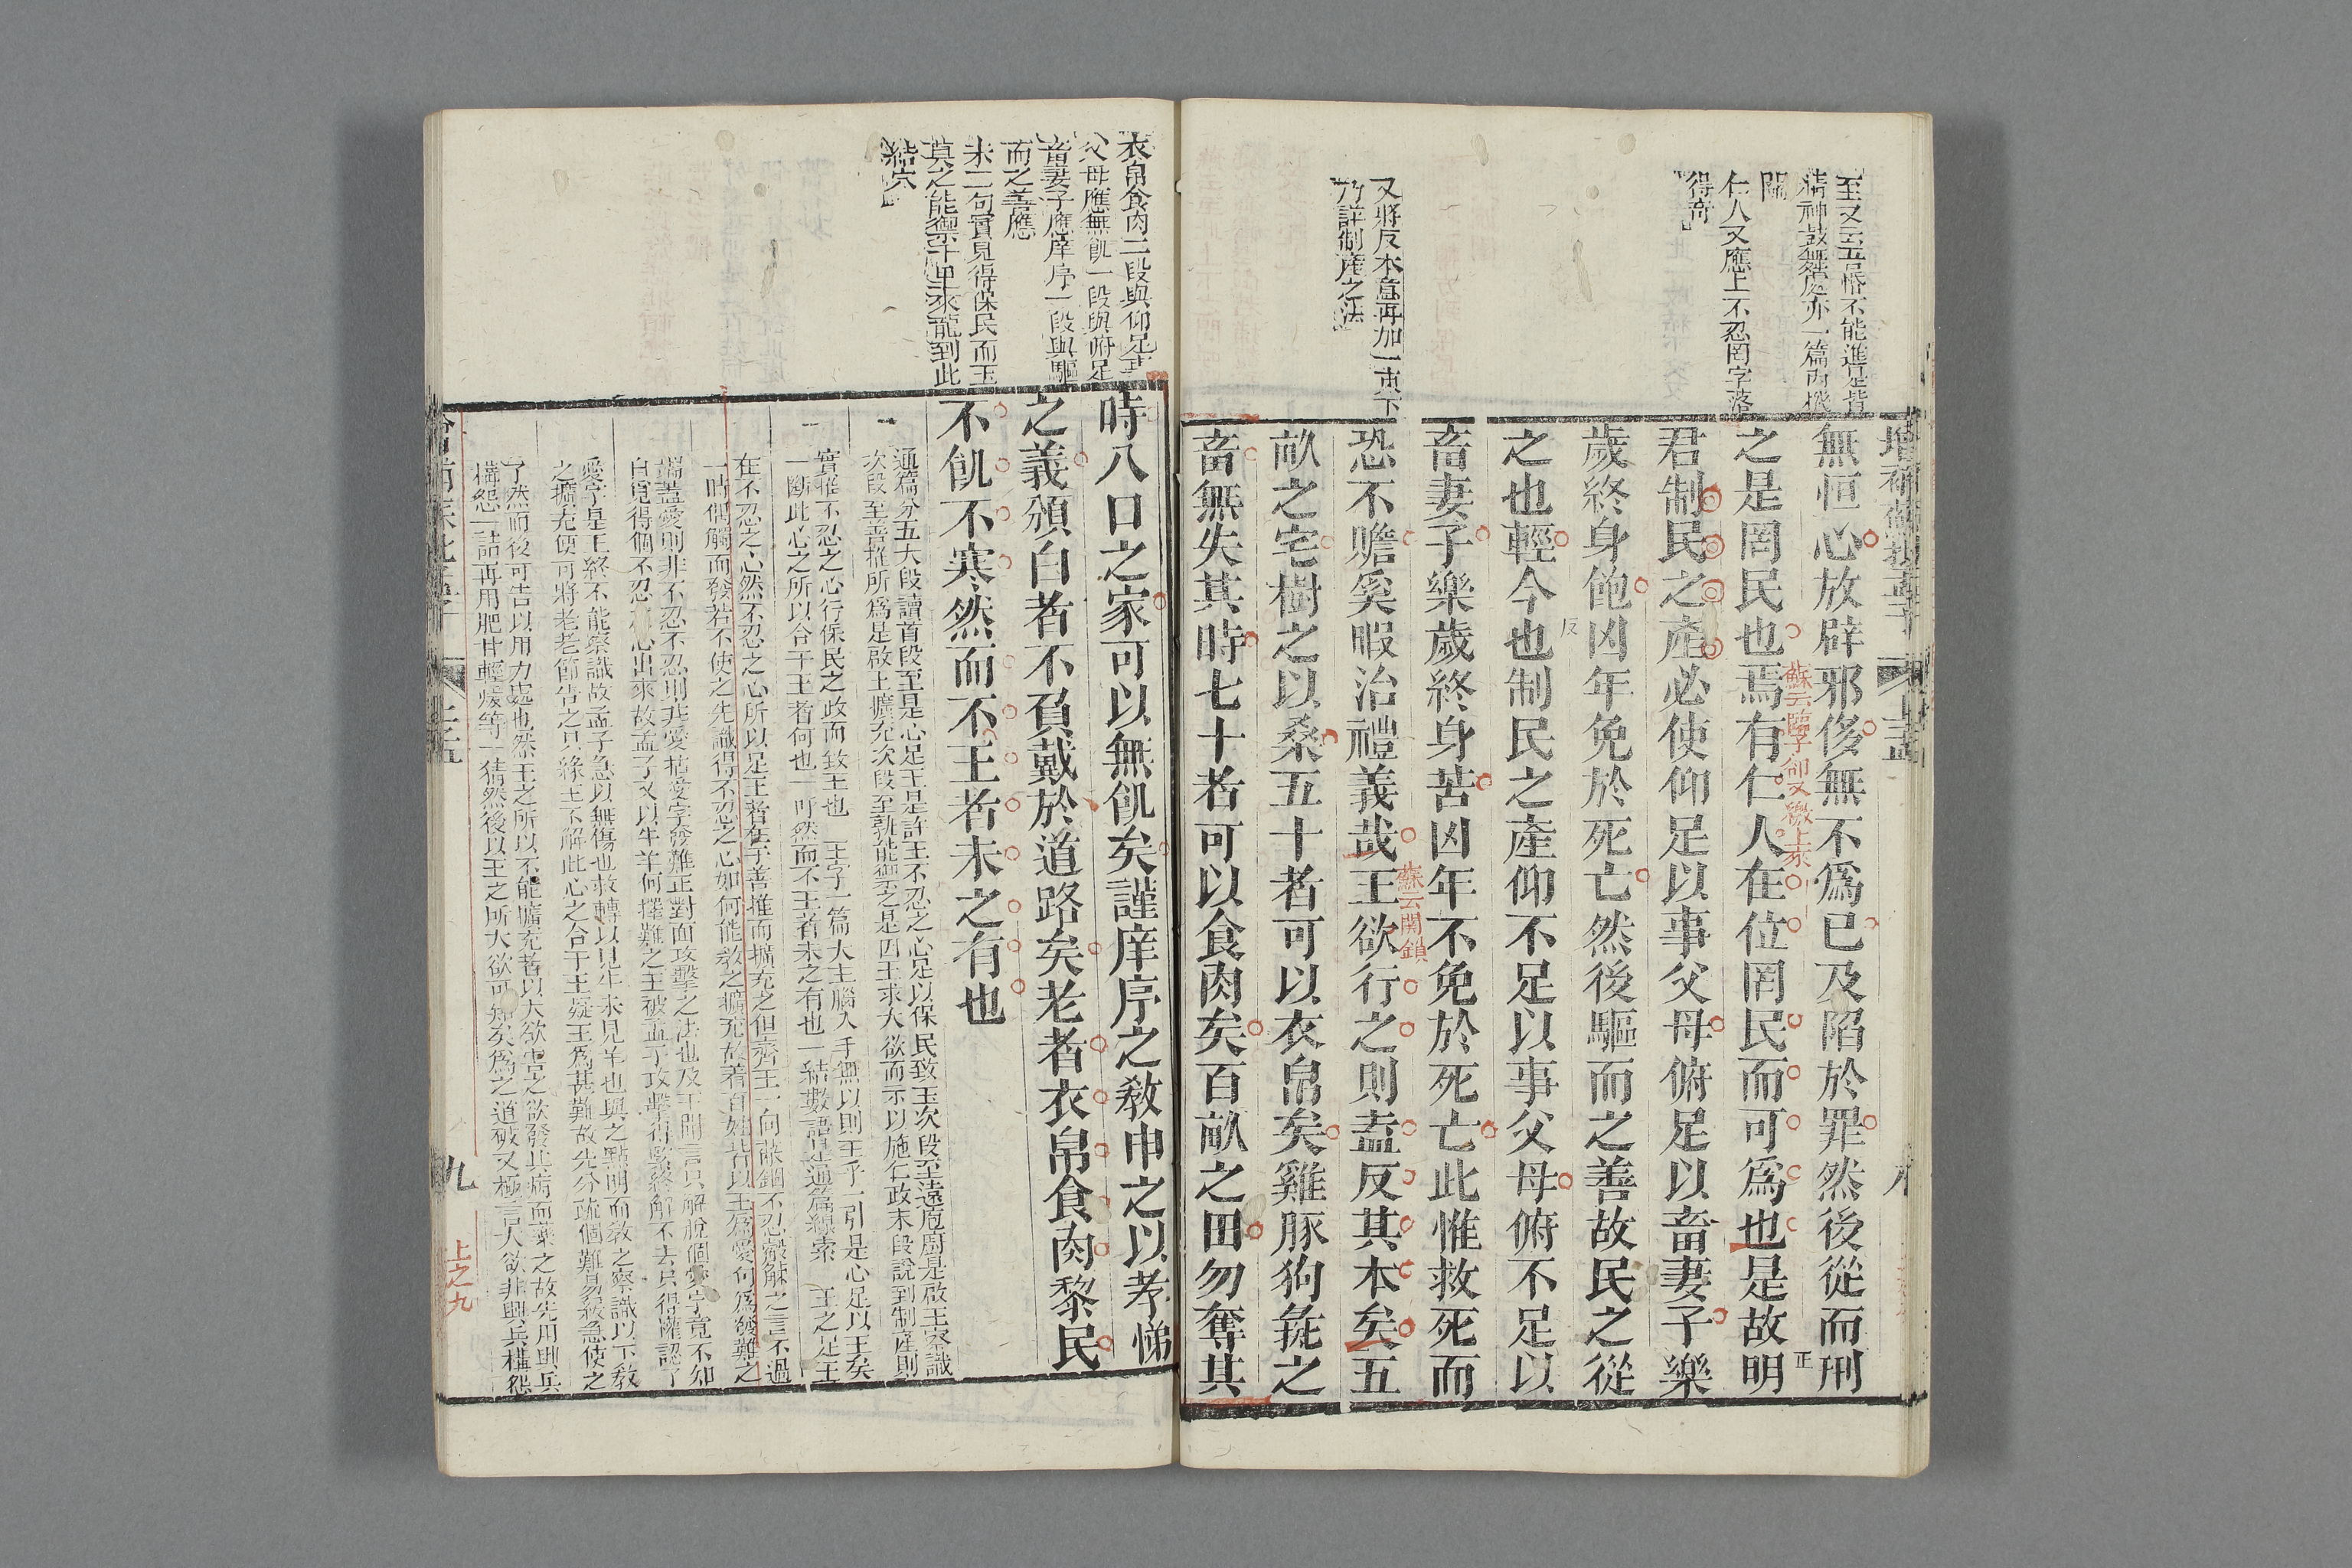 至又云吾惛不能進是皆
精神鼓舞處亦一篇內機
關
仁人又應上不忍罔字落
得奇
又將反本意再加一束下
乃詳制產之法
無恒心放辟邪侈無不爲已及陷於罪然後從而刑
之是罔民也焉有仁人在位罔民而可爲也是故明
蘇云臨了卻又繳上來
正
君制民之產必使仰足以事父母俯足以畜妻子樂
歲終身飽凶年免於死亡然後驅而之善故民之從
之也輕今也制民之產仰不足以事父母俯不足以
反
畜妻子樂歲終身苦凶年不免於死亡此惟救死而
恐不贍奚暇治禮義哉王欲行之則盍反其本矣五
蘇云關鎖
畝之宅樹之以桑五十者可以衣帛矣雞豚狗彘之
畜無失其時七十者可以食肉矣百畝之田勿奪其
衣帛食肉二段與仰足事
父母應無飢一段與俯足
畜妻子應庠序一段與驅
而之善應
末二句實見得保民而王
莫之能禦千里來龍到此
結穴
時八口之家可以無飢矣謹庠序之敎申之以孝悌
之義頒白者不負戴於道路矣老者衣帛食肉黎民
不飢不寒然而不王者未之有也
通篇分五大段讀首段至是心足王是許王不忍之心足以保民致王次段至遠庖廚是啟王察識
次段至善推所爲是啟王擴充次段至孰能禦之是四王求大欲而示以施仁政末段說到制產則
實推不忍之心行保民之政而致王也 王字一篇大主腦入手無以則王乎一引是心足以王矣
一斷此心之所以合于王者何也一呼然而不王者未之有也一結數語是通篇線索 王之足王
在不忍之心然不忍之心所以足王者在于善推而擴充之但齊王一向蔽錮不忍觳觫之言不過
一時偶觸而發若不使之先識得不忍之心如何能敎之擴充故着百姓皆以王爲愛何爲發難之
端蓋愛則非不忍不忍則非愛指愛字發難正對面攻擊之法也及王則言只解脫個愛字竟不知
自覓得個不忍之心出來故孟子又以牛羊何擇難之王被孟子攻擊得緊終解不去只得權認了
愛字是王終不能察識故孟子急以無傷也救轉以見牛未見羊也與之點明而敎之察識以下敎
之擴充便可將老老節告之只緣王不解此心之合于王疑王爲甚難故先分疏個難易緩急使之
了然而後可告以用力處也然王之所以不能擴充者以大欲害之欲發其病而藥之故先用興兵
構怨一詰再用肥甘輕煖等一猜然後以王之所大欲可知矣爲之道破又極言大欲非興兵構怨
九
上之九